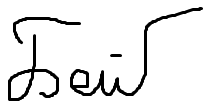 Бей